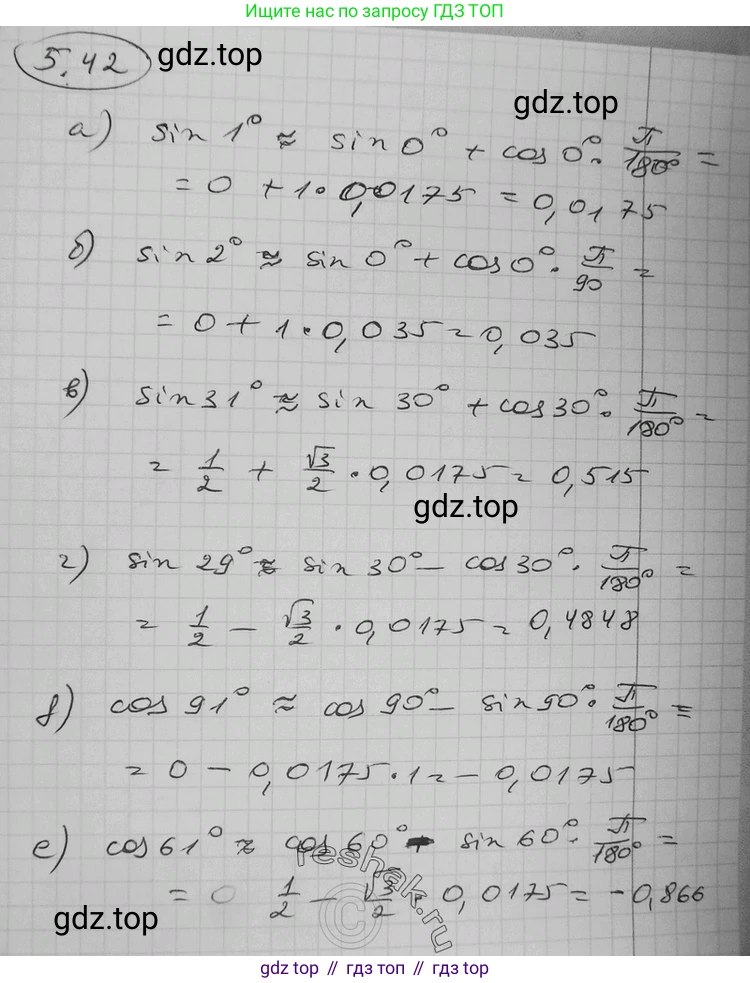 Ищите нас по запросу ГДЗ ТОП
5.42
gdz.top
gdz.top
а) sin 1° ≈ sin 0° + cos 0° · π/180° =
= 0 + 1 · 0,0175 = 0,0175
б) sin 2° ≈ sin 0° + cos 0° · π/90 =
= 0 + 1 · 0,035 = 0,035
в) sin 31° ≈ sin 30° + cos 30° · π/180° =
= 1/2 + √3/2 · 0,0175 = 0,515
gdz.top
г) sin 29° ≈ sin 30° − cos 30° · π/180° =
= 1/2 − √3/2 · 0,0175 = 0,4848
д) cos 91° ≈ cos 90° − sin 90° · π/180° =
= 0 − 0,0175 · 1 = − 0,0175
е) cos 61° ≈ cos 60° − sin 60° · π/180° =
= 1/2 − √3/2 · 0,0175 = −0,866
reshak.ru
©
gdz.top
gdz.top // гдз топ // gdz.top